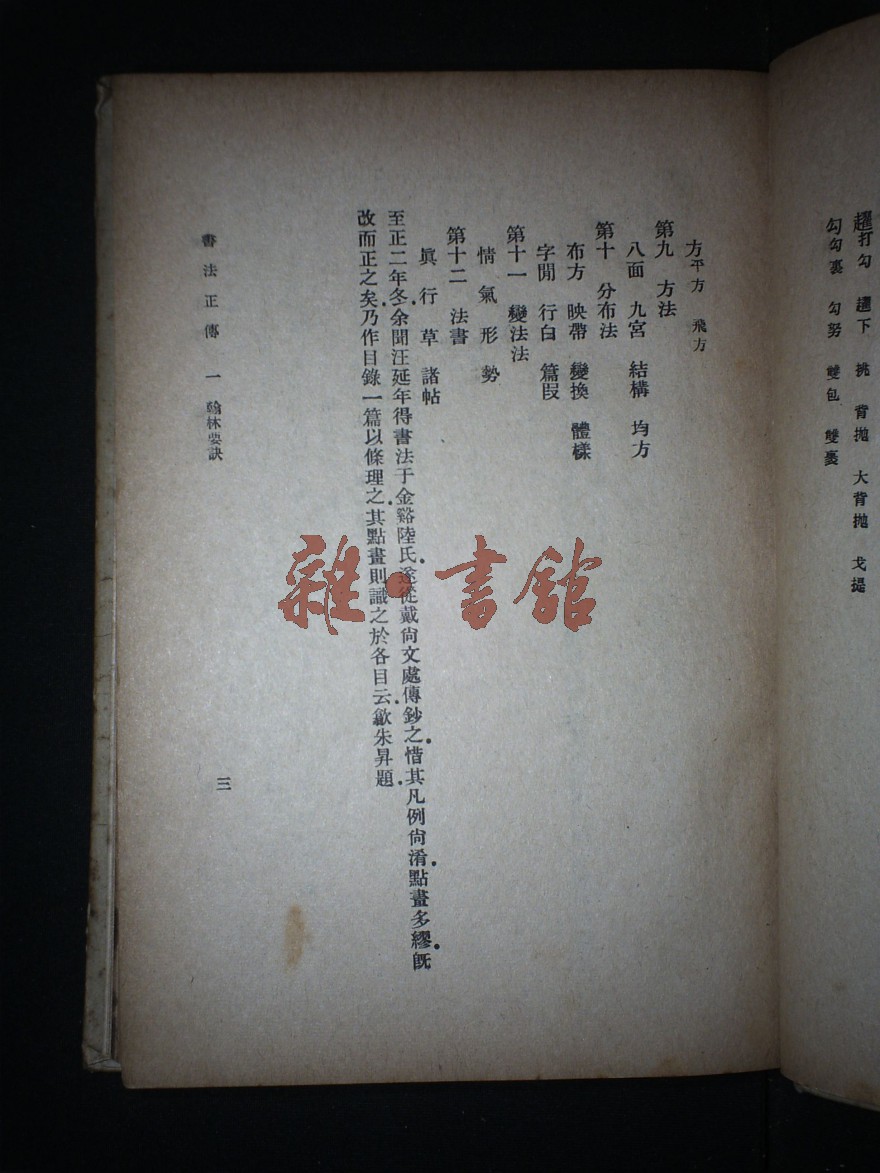 趯打勾　趯下　挑　背拋　大背拋　戈提
勾勾裏　勾努　雙包　雙裹
方平方　飛方
第九　方法
八面　九宮　結構　均方
第十　分布法
布方　映帶　變換　體樣
字閒　行白　篇段
第十一　變法法
情　氣　形　勢
第十二　法書
眞　行　草　諸帖
至正二年冬，余聞汪延年得書法于金谿陸氏，遂從戴尙文處傳鈔之，惜其凡例尙淆，點畫多繆，旣
改而正之矣，乃作目錄一篇以條理之，其點畫則識之於各目云，歙朱昇題．
書法正傳　一　翰林要訣
三
雜·書館